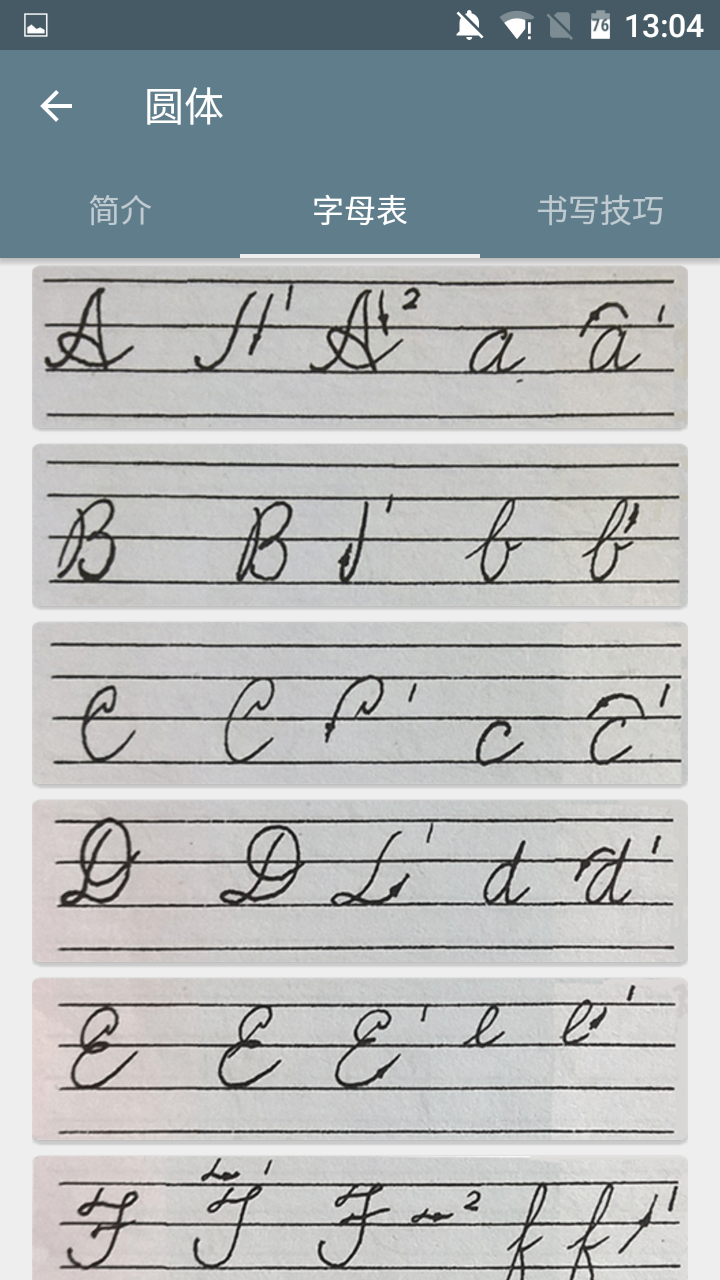 76 13:04
圆体
简介 字母表 书写技巧
A 1 A 2 a a 1
B B 1 b b
C C 1 c c 1
D D 1 d d 1
E E E 1 e e 1
F F 1 F 2 f f 1